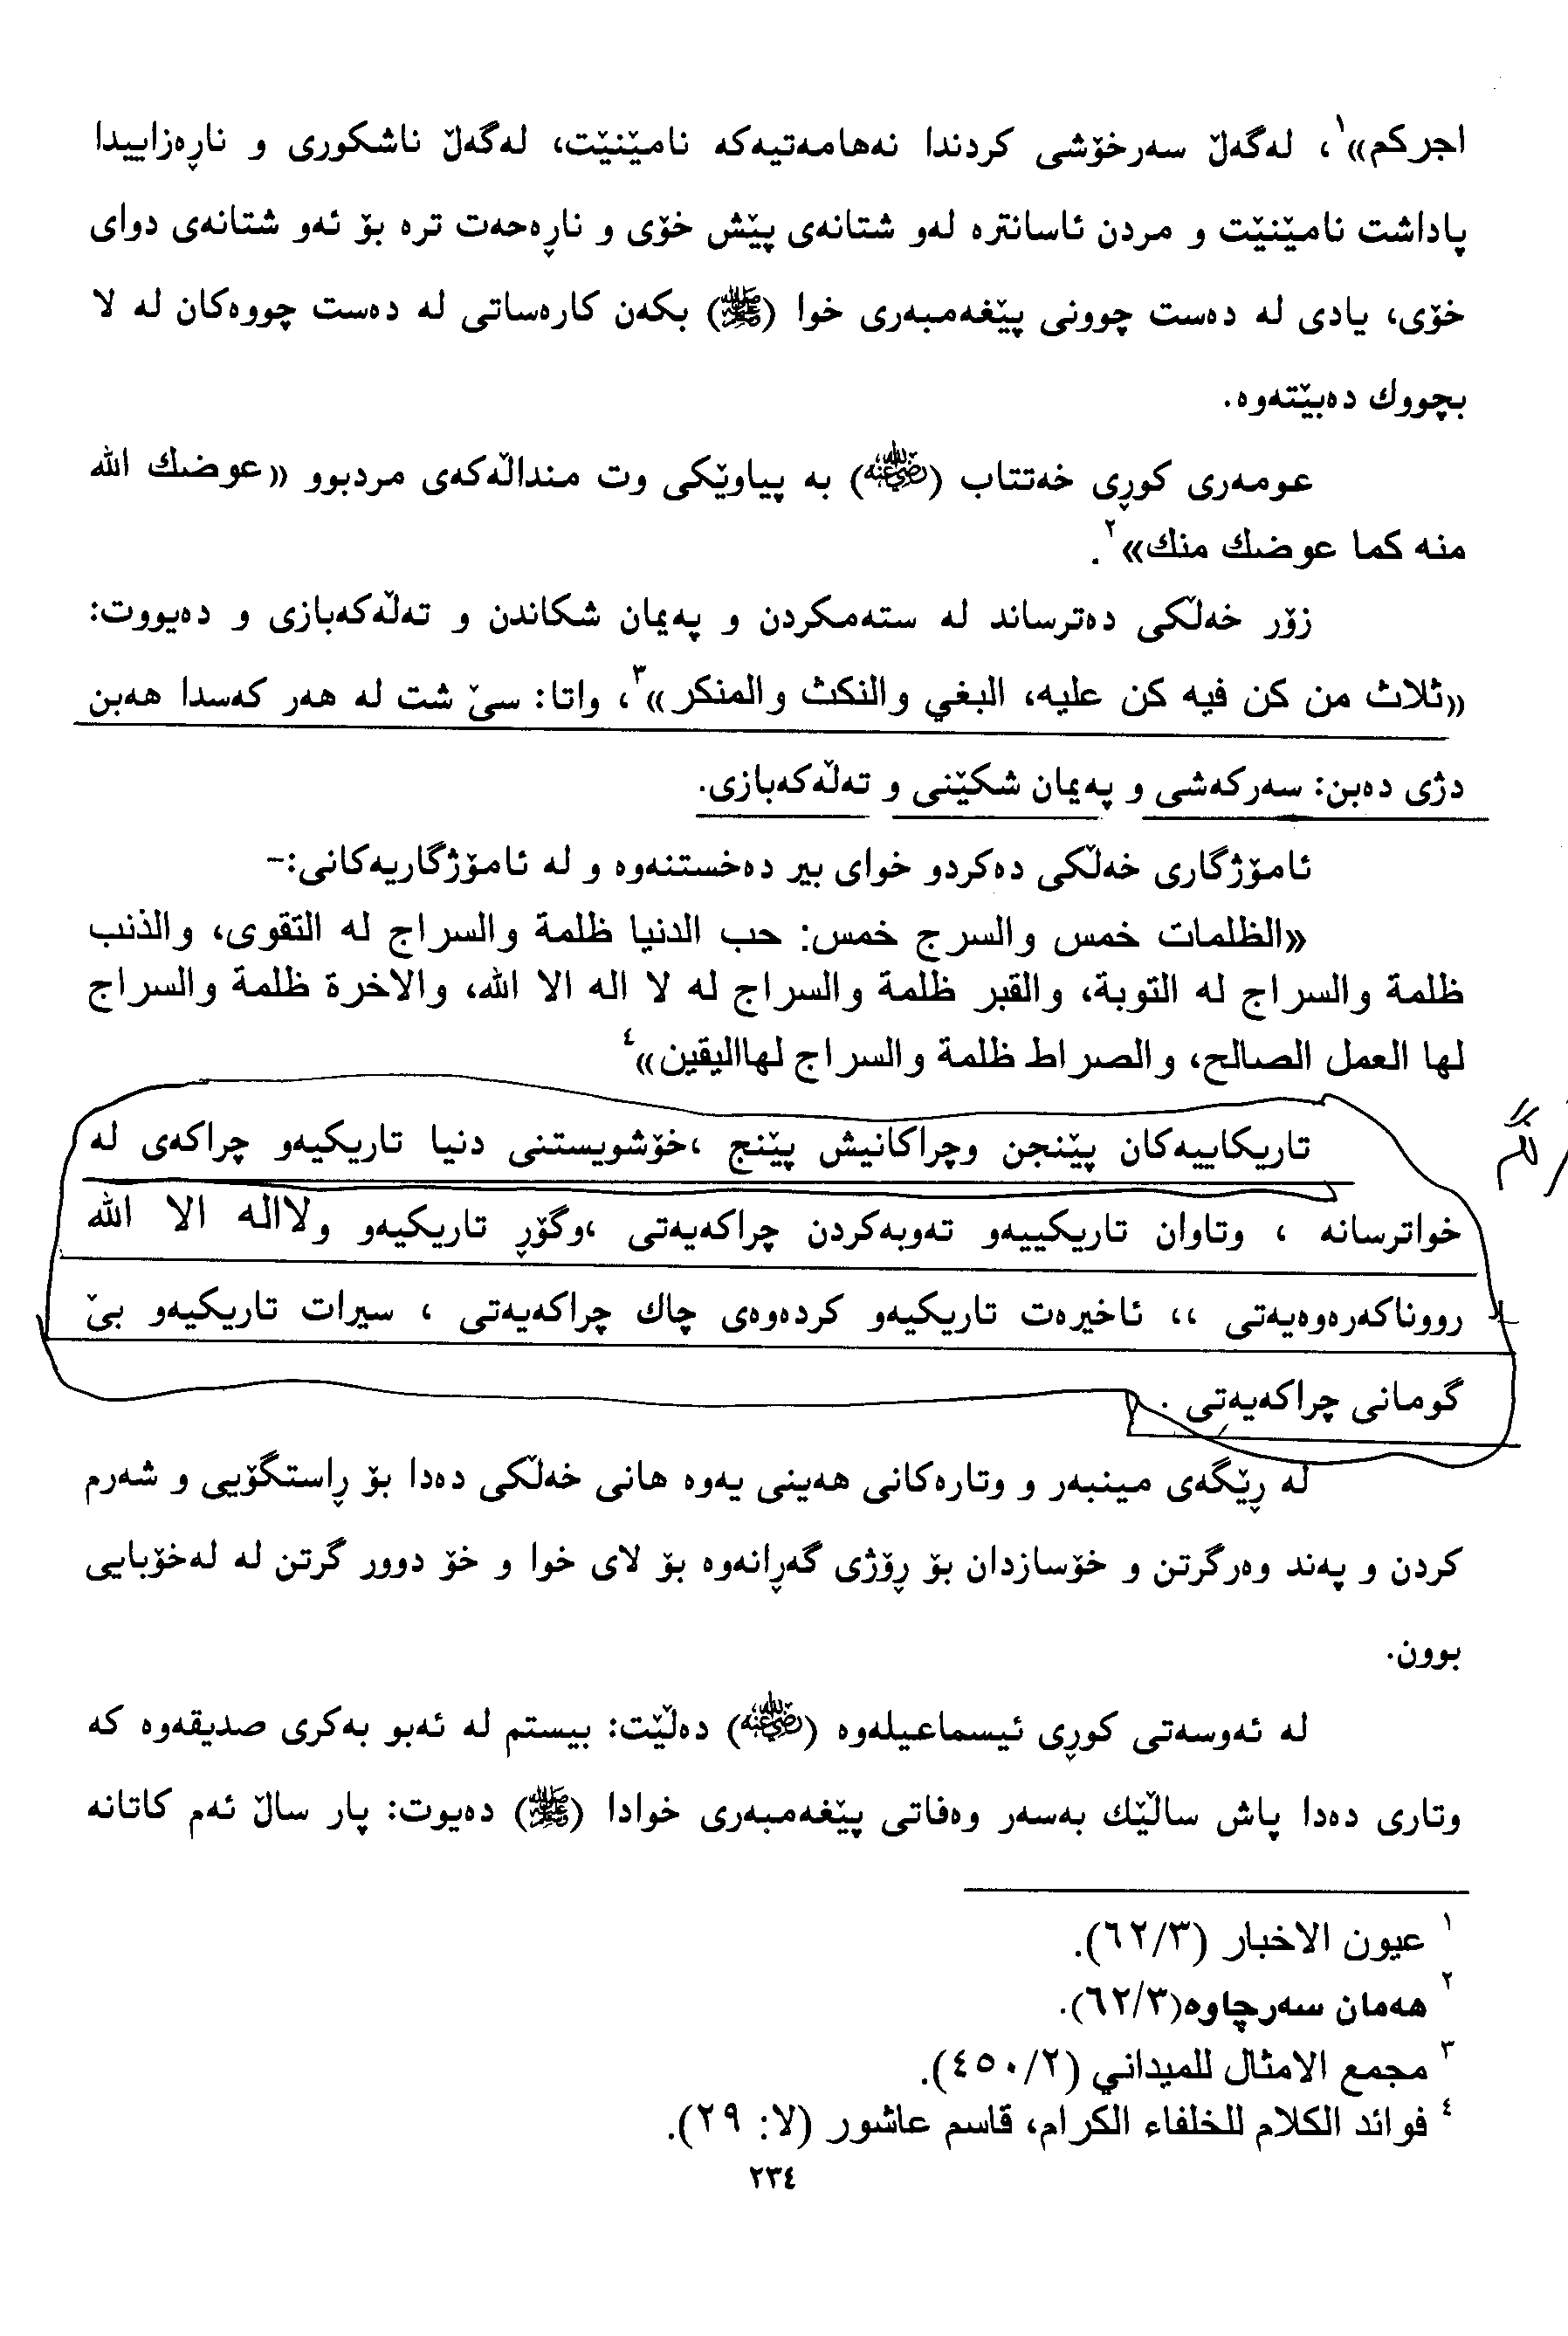 اجركم»١، لەگەڵ سەرخۆشی كردندا نەهامەتیەكە نامێنێت، لەگەڵ ناشكوری و ناڕەزاییدا
پاداشت نامێنێت و مردن ئاسانترە لەو شتانەی پێش خۆی و ناڕەحەت ترە بۆ ئەو شتانەی دوای
خۆی، یادی لە دەست چوونی پێغەمبەری خوا (ﷺ) بكەن كارەساتی لە دەست چووەكان لە لا
بچووك دەبێتەوە.
عومەری كوڕی خەتتاب (رضي الله عنه) بە پیاوێكی وت منداڵەكەی مردبوو «عوضك الله
منه كما عوضك منك»٢.
زۆر خەڵكی دەترساند لە ستەمكردن و پەیمان شكاندن و تەڵەكەبازی و دەیووت:
«ثلاث من كن فيه كن عليه، البغي والنكث والمنكر»٣، واتا: سێ شت لە هەر كەسدا هەبن
دژی دەبن: سەركەشی و پەیمان شكێنی و تەڵەكەبازی.
ئامۆژگاری خەڵكی دەكردو خوای بیر دەخستنەوە و لە ئامۆژگاریەكانی:-
«الظلمات خمس والسرج خمس: حب الدنيا ظلمة والسراج له التقوى، والذنب
ظلمة والسراج له التوبة، والقبر ظلمة والسراج له لا اله الا الله، والاخرة ظلمة والسراج
لها العمل الصالح، والصراط ظلمة والسراج لهااليقين»٤
تاریكاییەكان پێنجن وچراكانیش پێنج ،خۆشویستنی دنیا تاریكیەو چراكەی لە
خواترسانە ، وتاوان تاریكییەو تەوبەكردن چراكەیەتی ،وگۆڕ تاریكیەو ولااله الا الله
رووناكەرەوەیەتی ،، ئاخیرەت تاریكیەو كردەوەی چاك چراكەیەتی ، سیرات تاریكیەو بێ
گومانی چراكەیەتی .
لە ڕێگەی مینبەر و وتارەكانی هەینی یەوە هانی خەڵكی دەدا بۆ ڕاستگۆیی و شەرم
كردن و پەند وەرگرتن و خۆسازدان بۆ ڕۆژی گەڕانەوە بۆ لای خوا و خۆ دوور گرتن لە لەخۆبایی
بوون.
لە ئەوسەتی كوڕی ئیسماعیلەوە (رضي الله عنه) دەڵێت: بیستم لە ئەبو بەكری صدیقەوە كە
وتاری دەدا پاش ساڵێك بەسەر وەفاتی پێغەمبەری خوادا (ﷺ) دەیوت: پار ساڵ ئەم كاتانە
١ عيون الاخبار (٦٢/٣).
٢ هەمان سەرچاوە(٦٢/٣).
٣ مجمع الامثال للميداني (٤٥٠/٢).
٤ فوائد الكلام للخلفاء الكرام، قاسم عاشور (لا: ٢٩).
٢٣٤